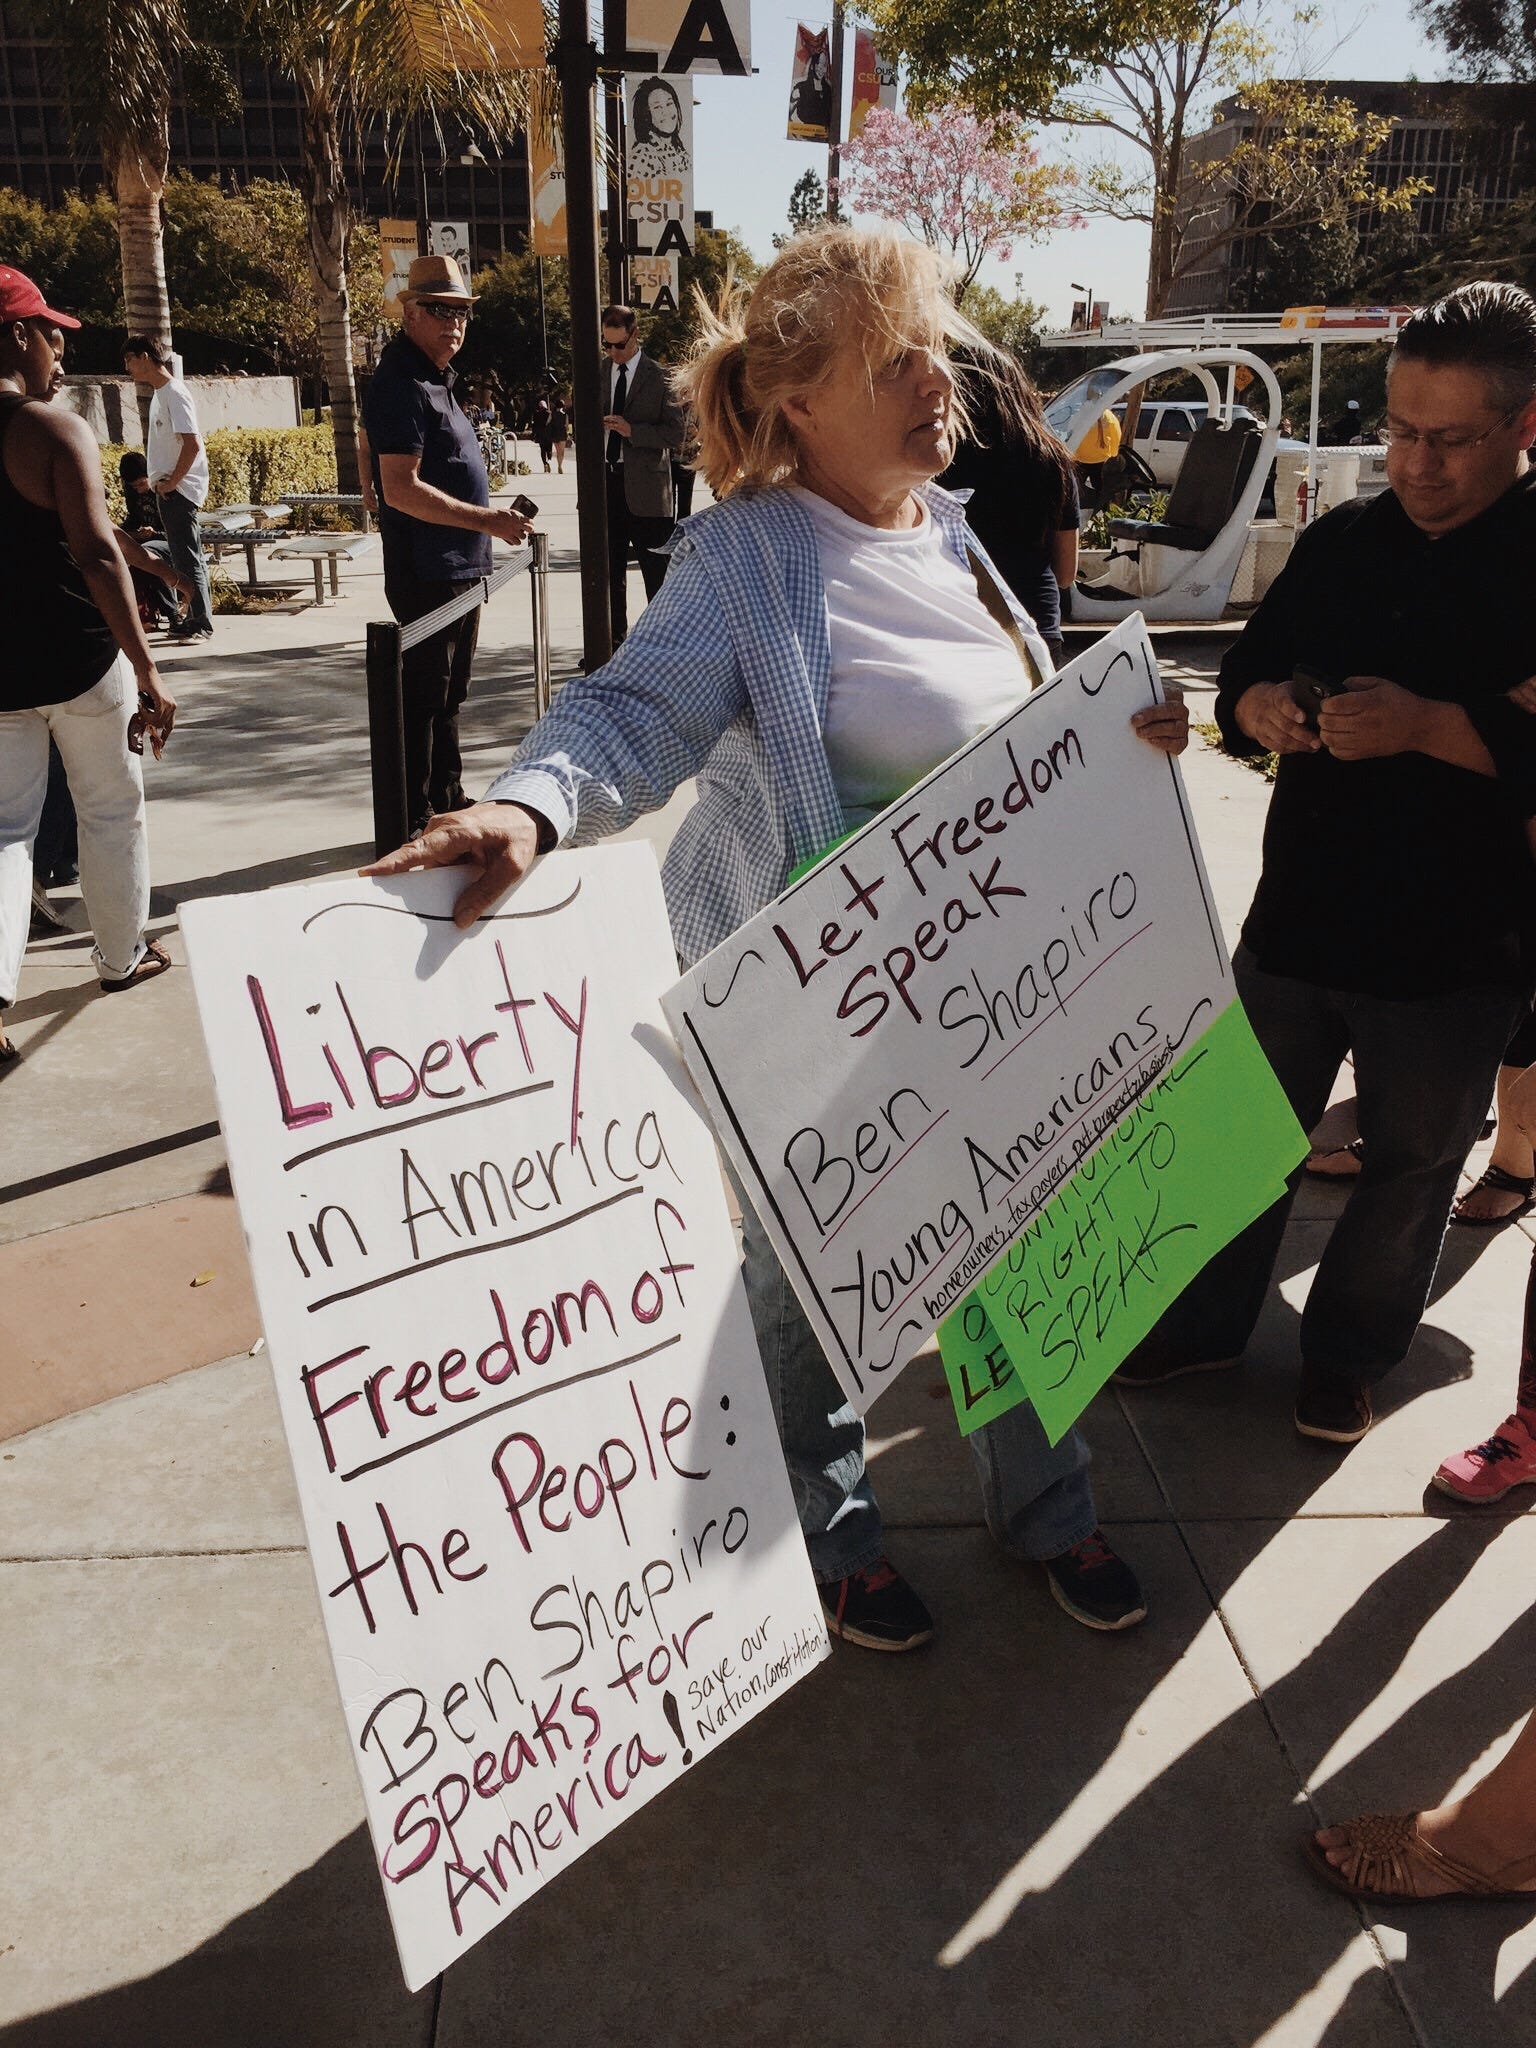 LA
OUR
CSU
LA
OUR
CSU
LA
OUR
CSULA
STUDENT
Liberty
in America
Freedom of
the People:
Ben Shapiro
speaks for
America!
Save our
Nation, Constitution!
Let Freedom
Speak
Ben Shapiro
Young Americans
homeowners, tax payers,
RIGHT TO
SPEAK
LE